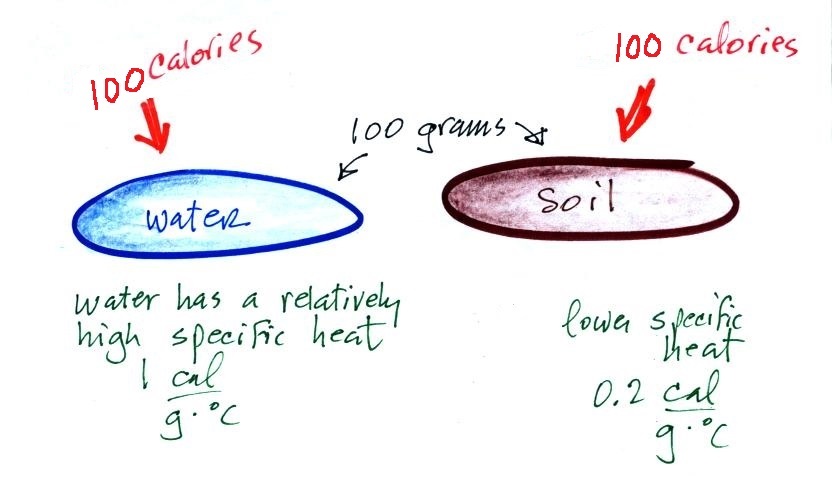 100 calories
100 calories
100 grams
water
soil
water has a relatively
high specific heat
1 cal
g·°C
lower specific
heat
0.2 cal
g·°C